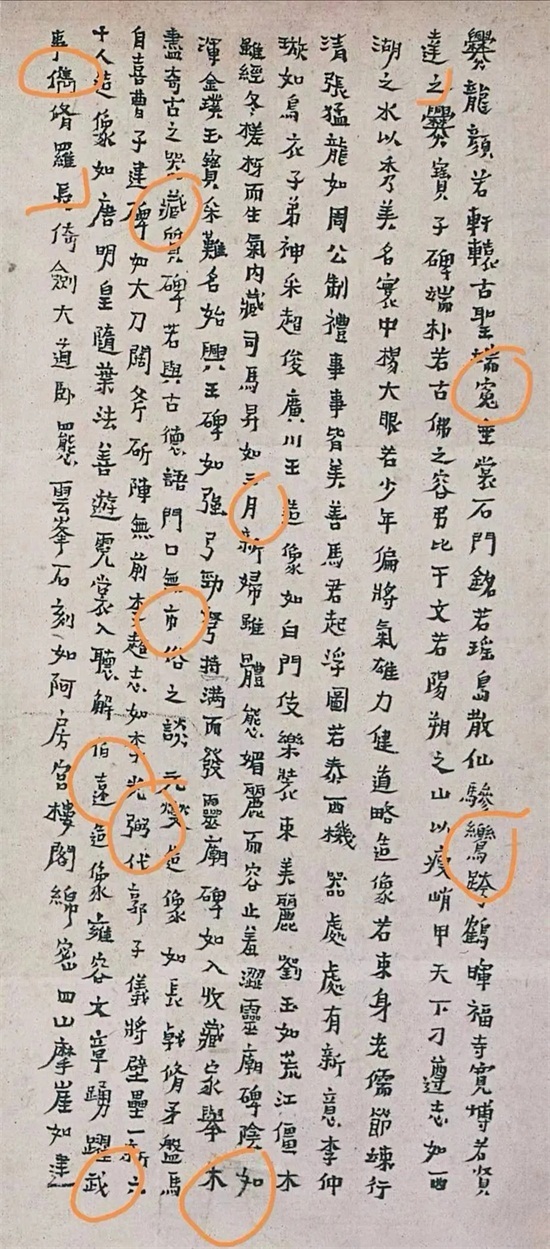 爨龍顏若軒轅古聖端冕垂裳石門銘若瑤島散仙驂鸞跨鶴暉福寺寬博若賢
達之爨寶子碑端朴若古佛之容弔比干文若陽朔之山以瘦峭甲天下刁遵志如西
湖之水以秀美名寰中楊大眼若少年偏將氣雄力健道略造像若束身老儒節竦行
清張猛龍如周公制禮事事皆美善馬君起浮圖若泰西機器處處有新意李仲
璇如烏衣子弟神采超俊廣川王造像如白門伎樂裝束美麗劉玉如荒江僵木
雖經冬槎枒而生氣內藏司馬昇如三月新婦雖體態媚麗而容止羞澀靈廟碑陰如
渾金璞玉寶采難名始興王碑如強弓勁弩持滿而發靈廟碑如入收藏家舉木
盡奇古之器藏質碑若與古德語門口無市俗之談元燮造像如長戟脩矛盤馬
自喜曹子建碑如大刀闊斧斫陣無前李超志如李光弼代郭子儀將壁壘一新六
十人造像如唐明皇隨葉法善遊霓裳入聽解伯達造像雍容文章踴躍武
事儁脩羅長倚劍大道臥羆雲峯石刻如阿房宮樓閣綿密四山摩崖如建